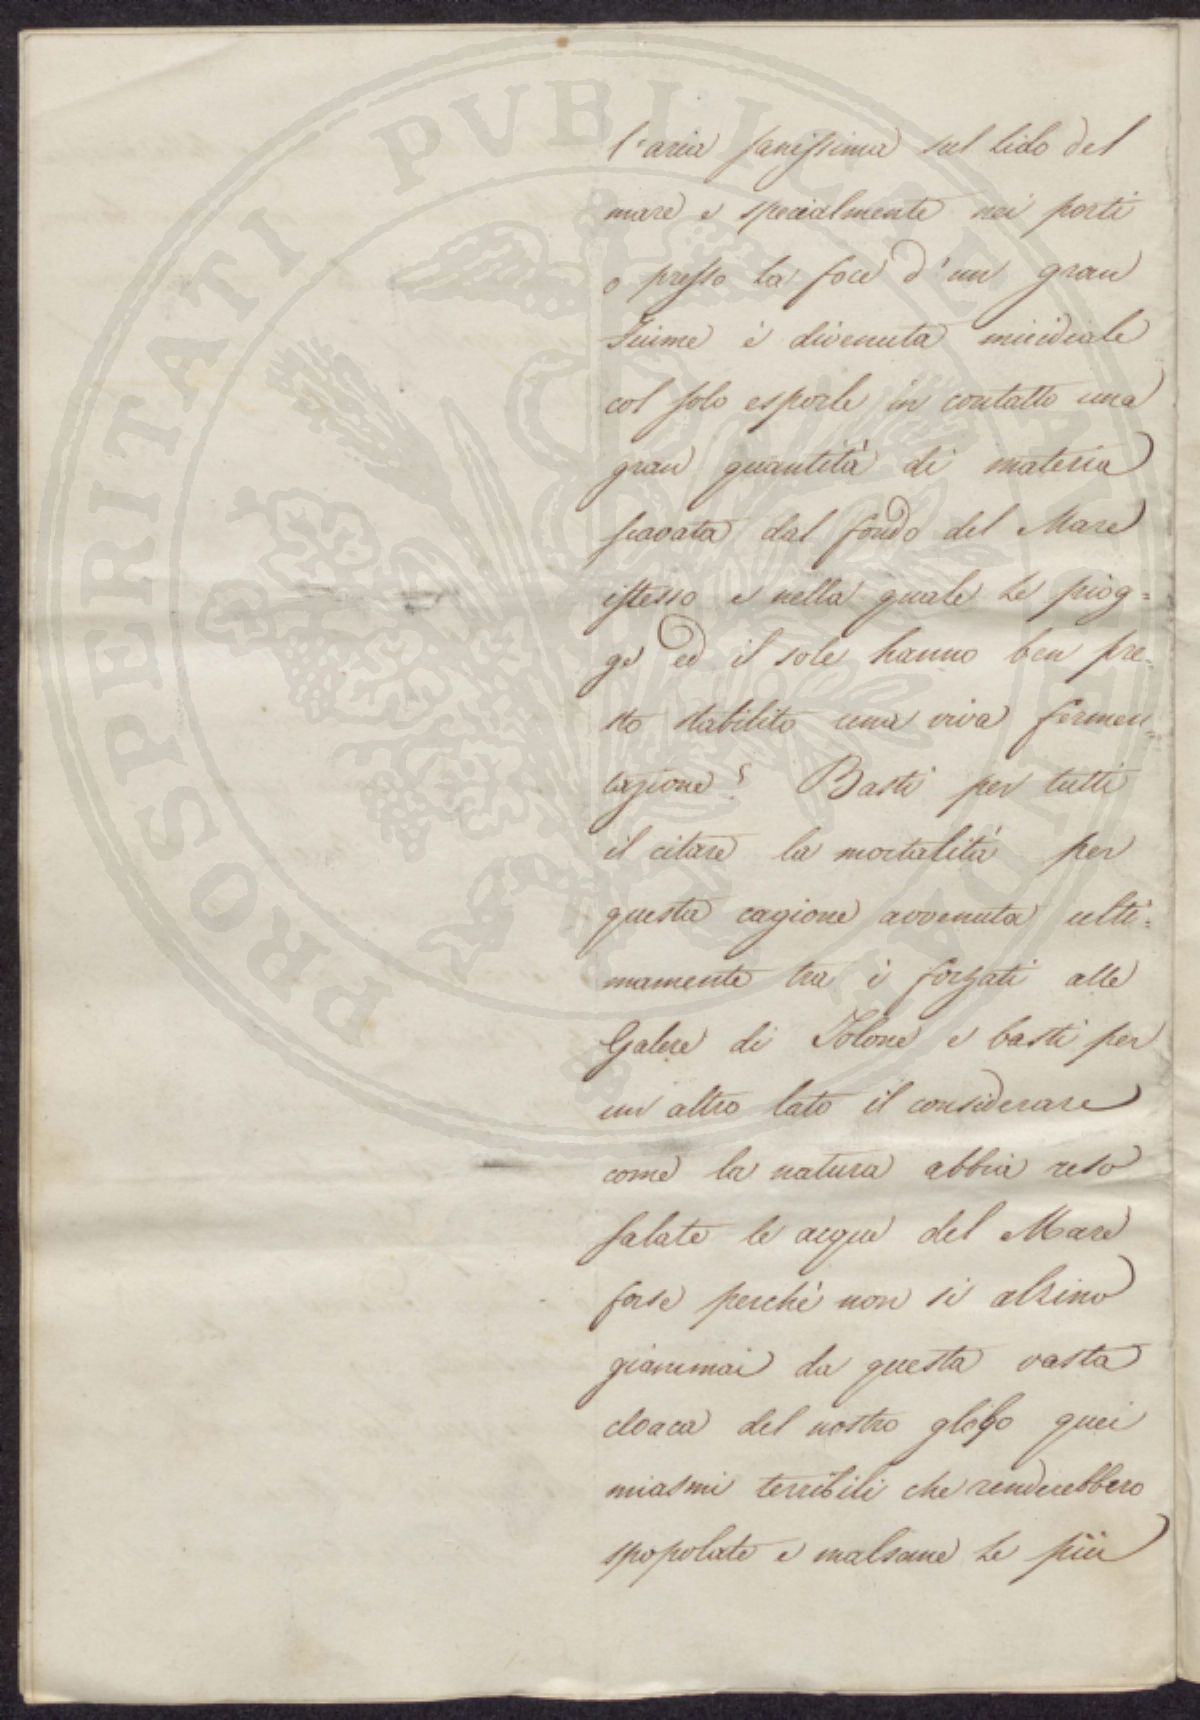 l'aria sanissima sul lido del
mare e specialmente nei porti
o presso la foce d'un gran
Fiume è divenuta micidiale
col solo esporle in contatto una
gran quantità di materia
scavata dal fondo del Mare
istesso e nella quale le piog=
ge ed il sole hanno ben pre=
sto stabilito una viva fermen=
tazione? Basti per tutti
il citare la mortalità per
questa cagione avvenuta ulti=
mamente tra i forzati alle
Galere di Tolone e basti per
un altro lato il considerare
come la natura abbia reso
salate le acque del Mare
forse perchè non si alzino
giammai da questa vasta
cloaca del nostro globo quei
miasmi terribili che renderebbero
spopolate e malsane le più
PROSPERITATI PUBLICAE